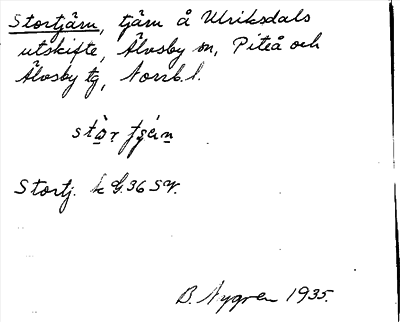 Stortjärn, tjärn å Ulriksdals
utskifte, Älvsby sn, Piteå och
Älvsby tg, Norrb. l.
Stortj. k G. 36 SV.
B. Nygren 1935.